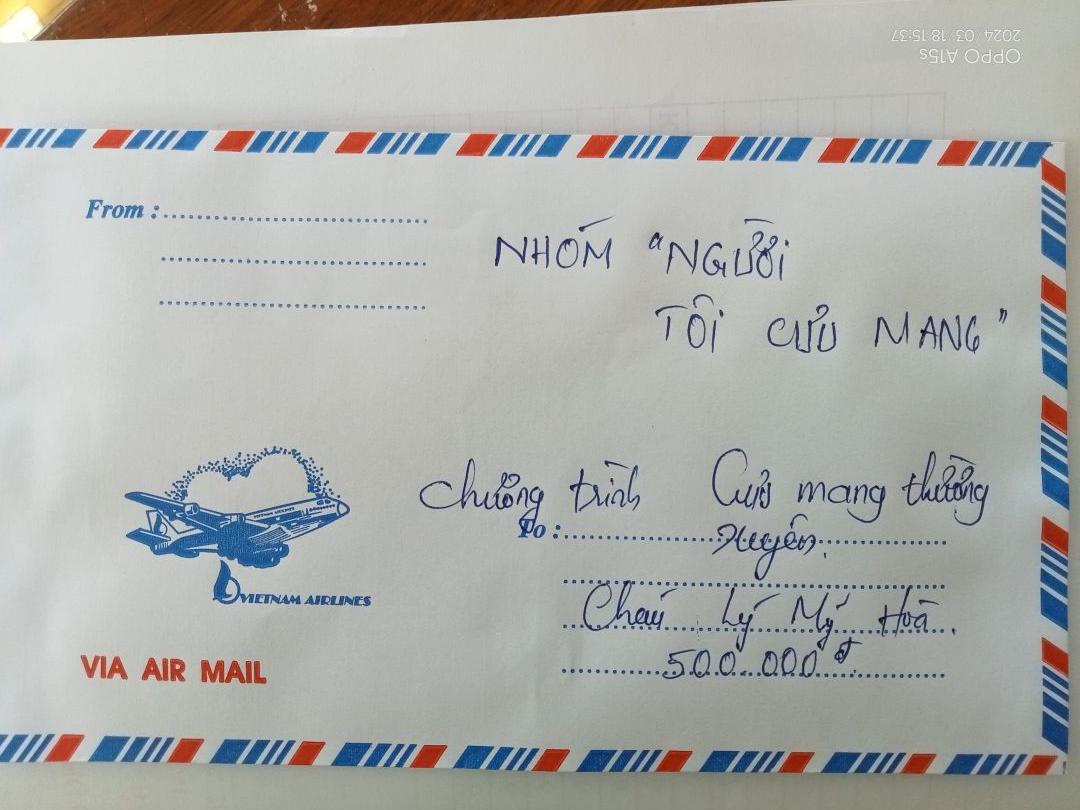 OPPO A15s
2024 03 18 15:37
From :
NHÓM "NGƯỜI
TÔI CƯU MANG"
Chương trình Cưu mang thường
To :
Xuyên.
Cháu Lý Mỹ Hoà.
500.000đ
VIETNAM AIRLINES
VIETNAM AIRLINES
VIA AIR MAIL